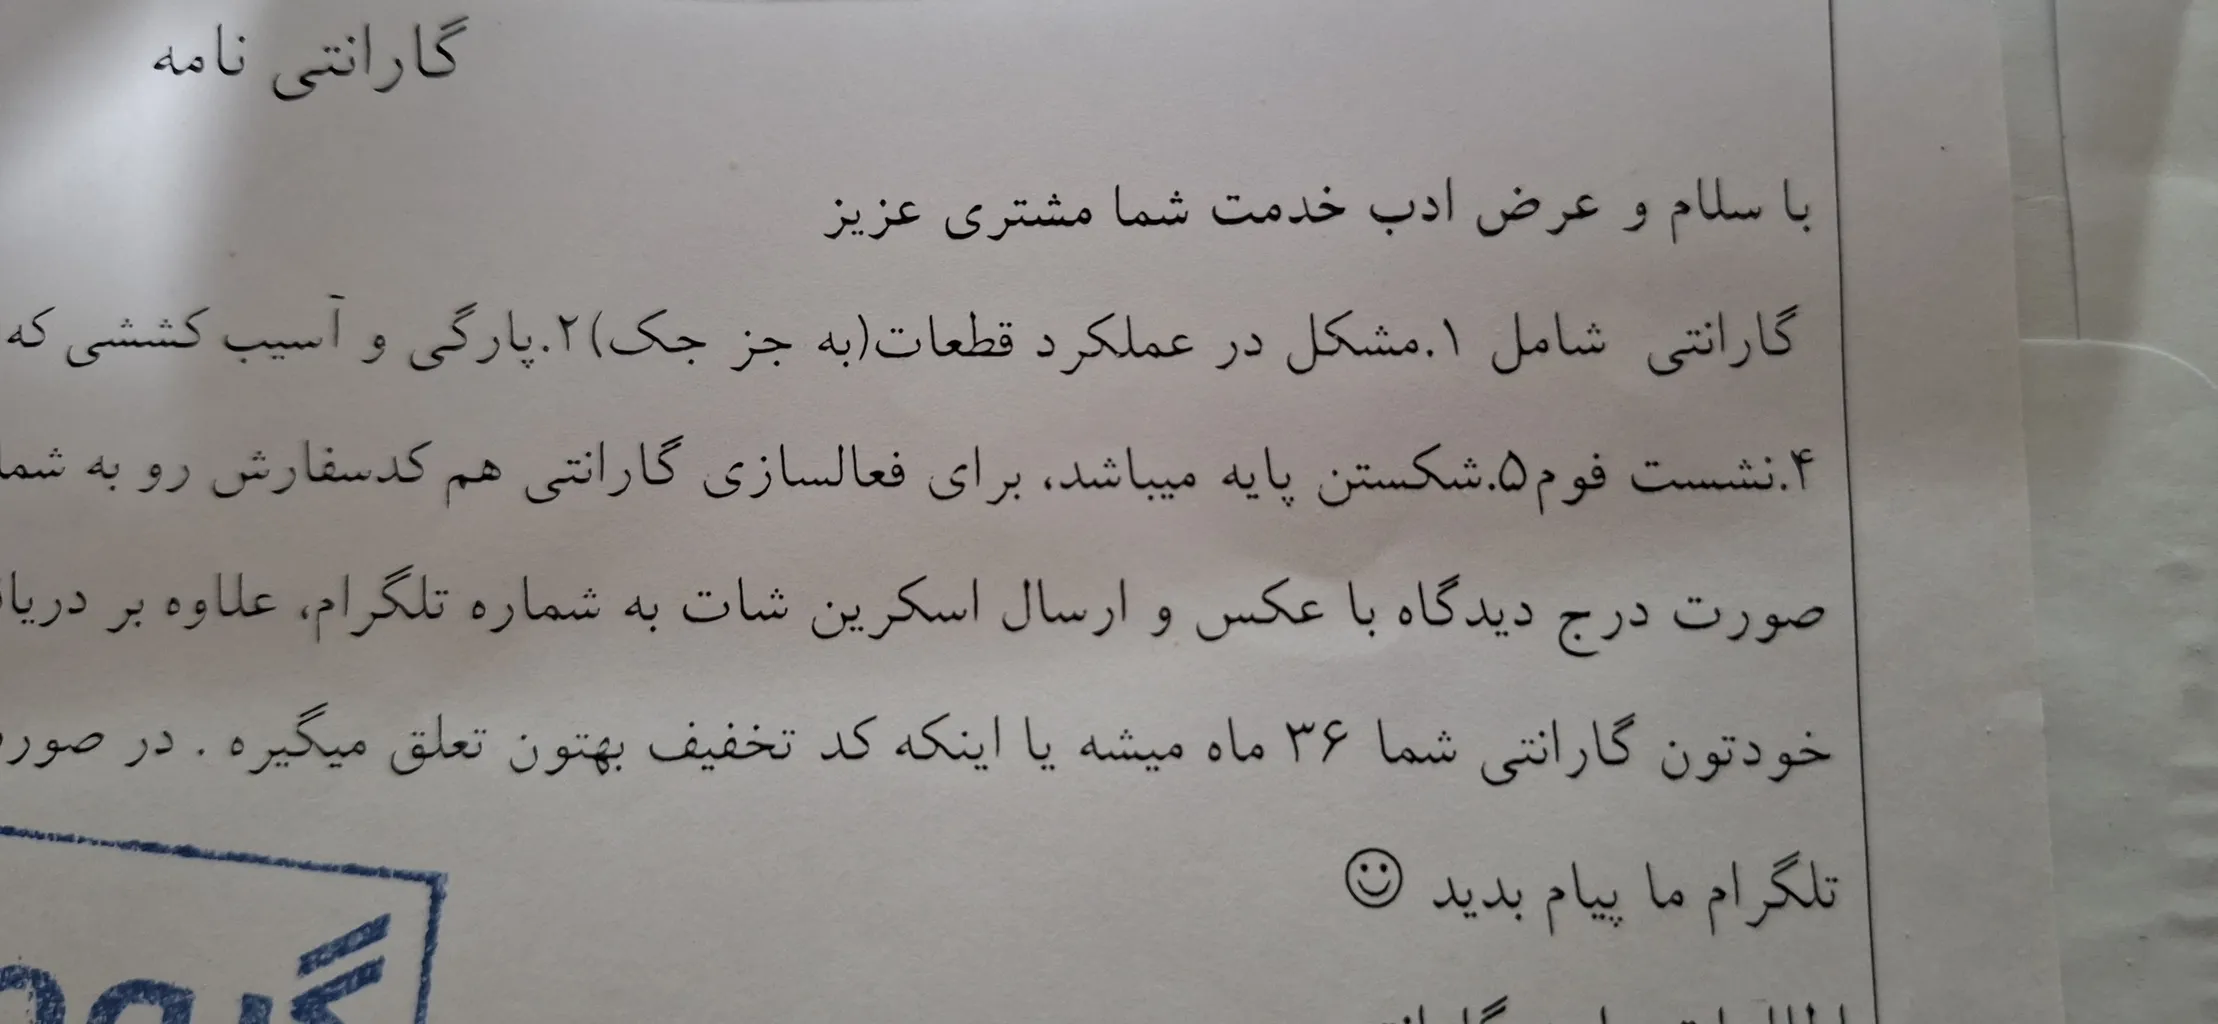 گارانتی نامه
با سلام و عرض ادب خدمت شما مشتری عزیز
گارانتی شامل ۱.مشکل در عملکرد قطعات(به جز جک)۲.پارگی و آسیب کششی که
۴.نشست فوم۵.شکستن پایه میباشد، برای فعالسازی گارانتی هم کدسفارش رو به شما
صورت درج دیدگاه با عکس و ارسال اسکرین شات به شماره تلگرام، علاوه بر
خودتون گارانتی شما ۳۶ ماه میشه یا اینکه کد تخفیف بهتون تعلق میگیره . در
تلگرام ما پیام بدید ☺